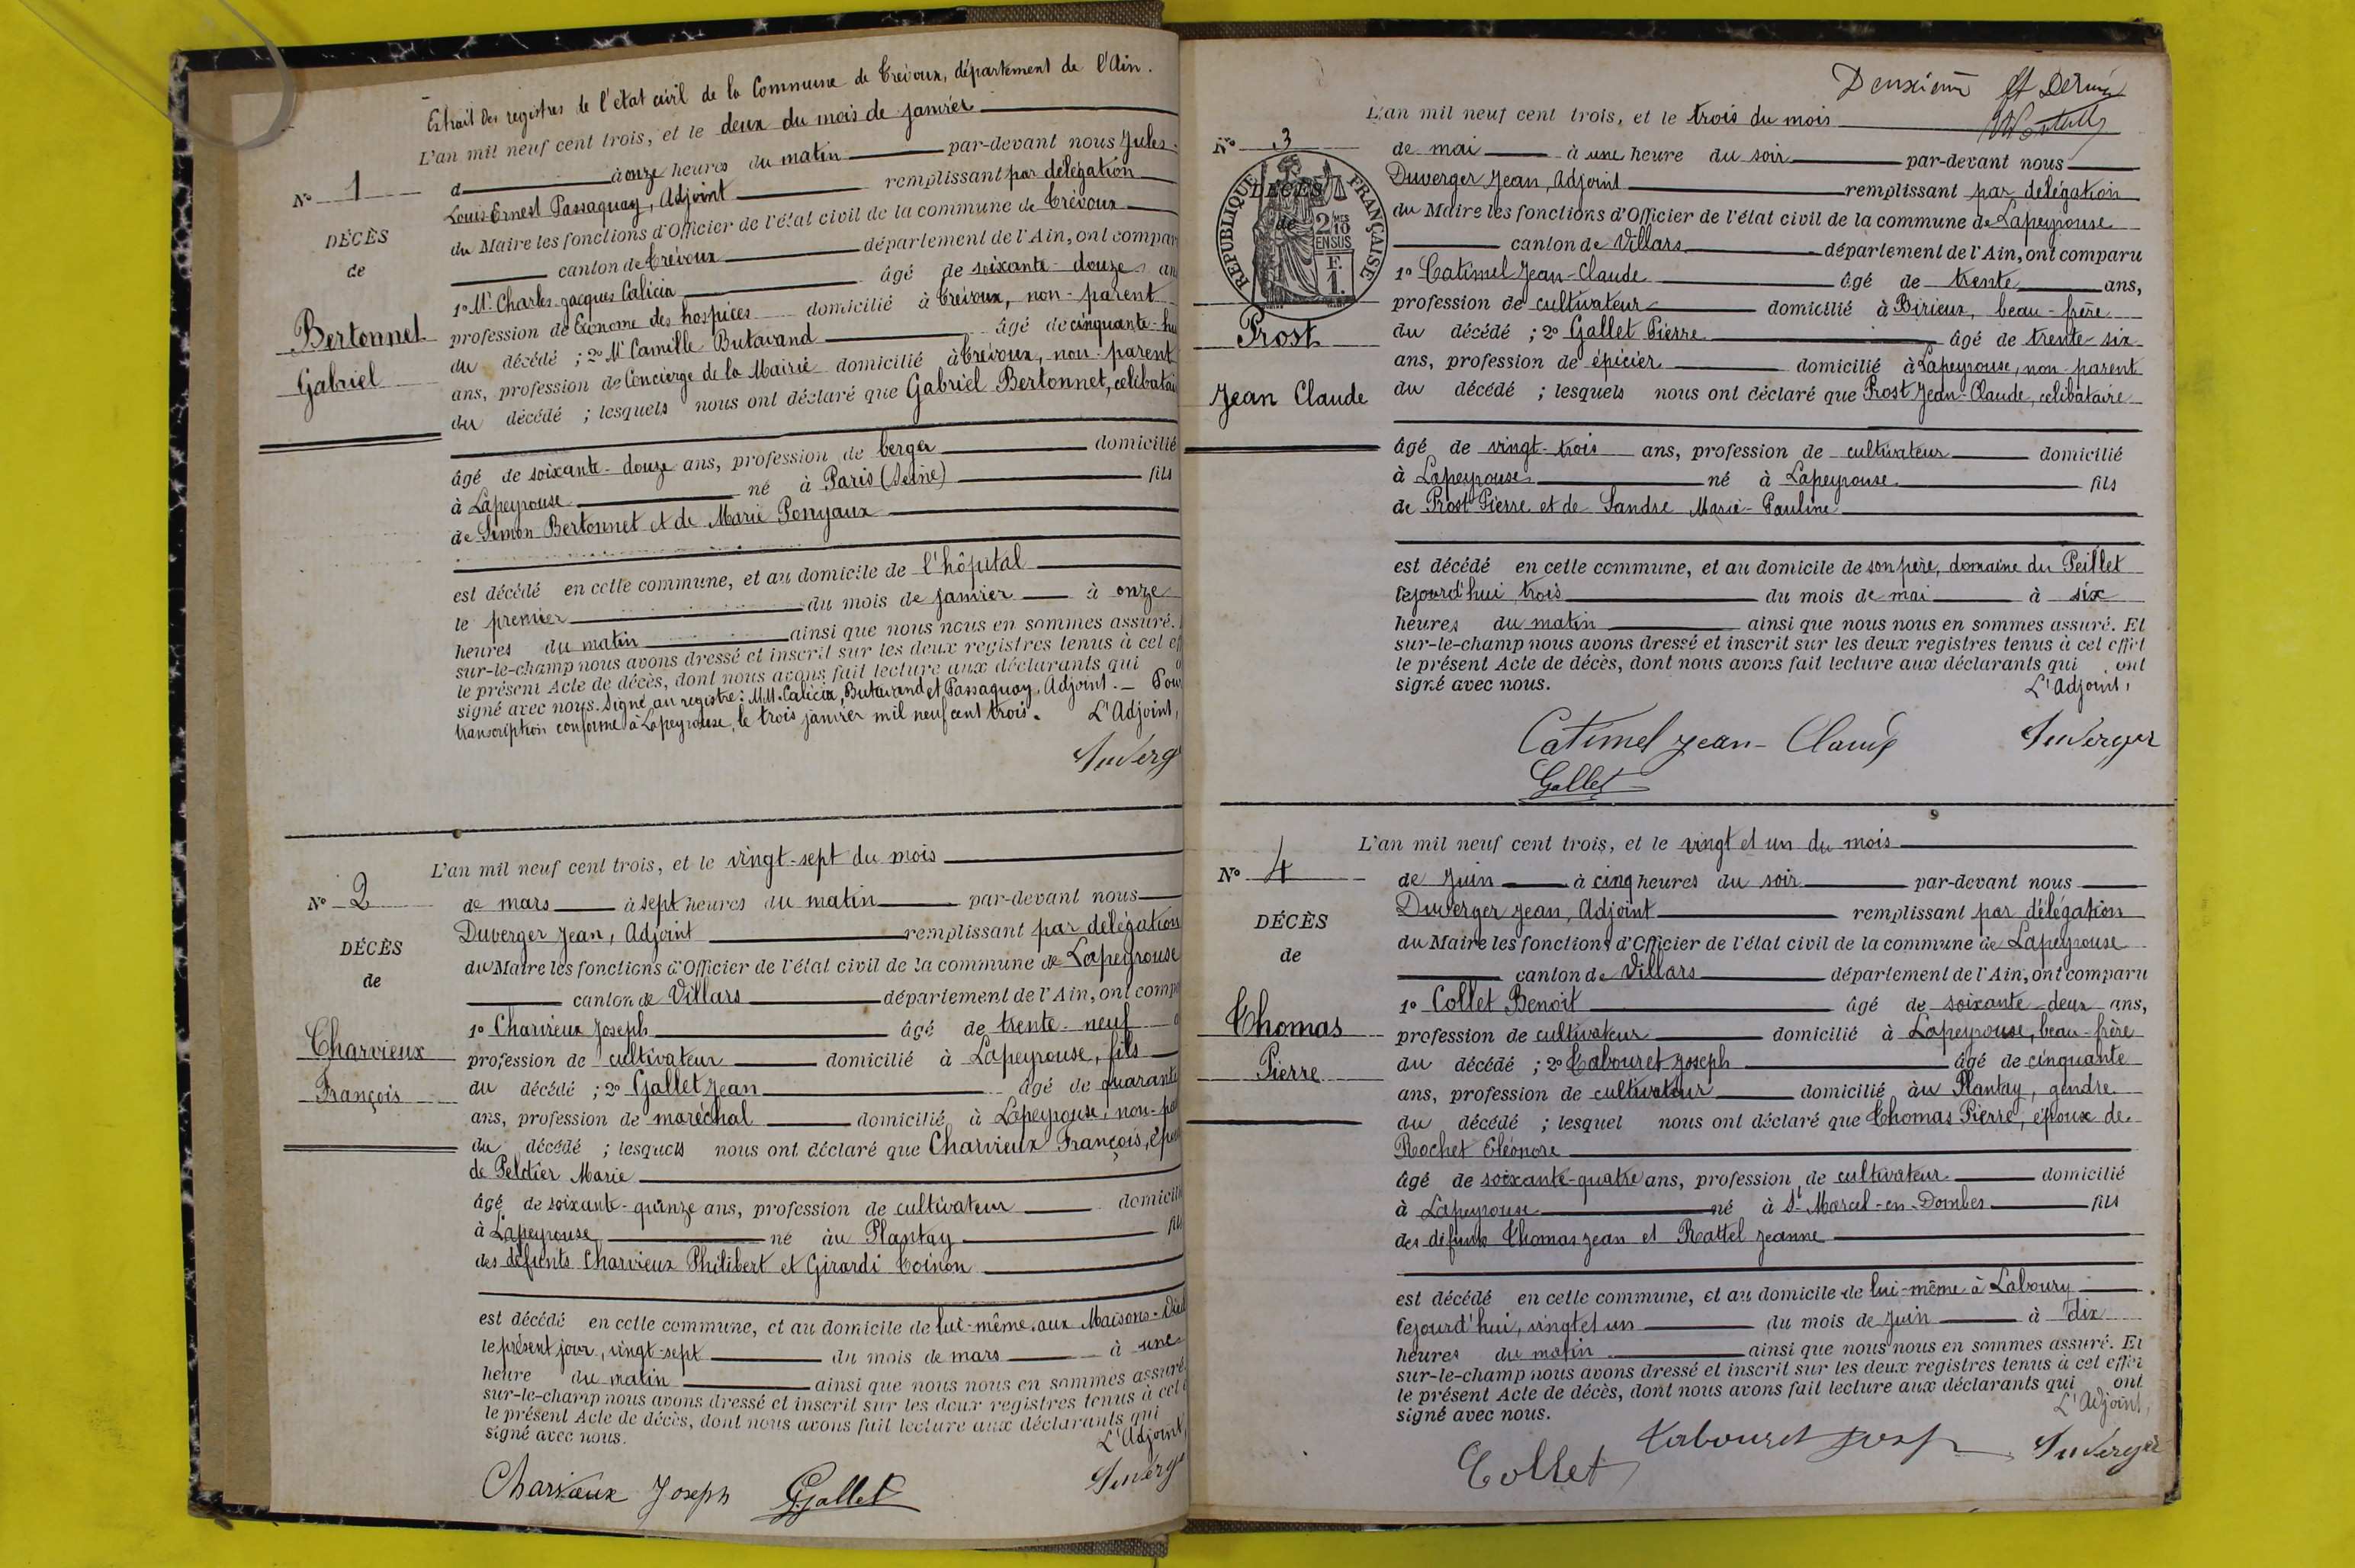 Extrait des registres de l'état civil de la Commune de Trévoux, département de l'Ain.
L'an mil neuf cent trois, et le deux du mois de janvier
N° 1
à onze heures du matin par-devant nous Jules
Louis Ernest Passaquay, Adjoint remplissant par délégation
DÉCÈS
du Maire les fonctions d'Officier de l'état civil de la commune de Trévoux
de
canton de Trévoux département de l'Ain, ont compar
1° Mr Charles Jacques Calicia âgé de soixante-douze an
Bertonnet
profession de Econome des hospices domicilié à Trévoux, non-parent
du décédé ; 2° Mr Camille Butavand âgé de cinquante-hu
Gabriel
ans, profession de Concierge de la Mairie domicilié à Trévoux, non-parent
du décédé ; lesquels nous ont déclaré que Gabriel Bertonnet, célibatai
âgé de soixante-douze ans, profession de berger domicilié
à Lapeyrouse né à Paris (Seine) fils
de Simon Bertonnet et de Marie Ponyaux
est décédé en cette commune, et au domicile de l'hôpital
le premier du mois de janvier à onze
heures du matin ainsi que nous nous en sommes assuré.
sur-le-champ nous avons dressé et inscrit sur les deux registres tenus à cet ef
le présent Acte de décès, dont nous avons fait lecture aux déclarants qui
signé avec nous. Signé au registre : M.M. Calicia, Butavand et Passaquay, Adjoint. — Pour
transcription conforme à Lapeyrouse, le trois janvier mil neuf cent trois. L'Adjoint,
Duverg
L'an mil neuf cent trois, et le vingt-sept du mois
N° 2
de mars à sept heures du matin par-devant nous
Duverger Jean, Adjoint remplissant par délégation
DÉCÈS
du Maire les fonctions d'Officier de l'état civil de la commune de Lapeyrouse
de
canton de Villars département de l'Ain, ont comp
1° Charvieux Joseph âgé de trente-neuf
Charvieux
profession de cultivateur domicilié à Lapeyrouse, fils
François
du décédé ; 2° Gallet Jean âgé de quarante
ans, profession de maréchal domicilié à Lapeyrouse, non-pa
du décédé ; lesquels nous ont déclaré que Charvieux François, épou
de Peldier Marie
âgé de soixante-quinze ans, profession de cultivateur domicili
à Lapeyrouse né au Plantay fils
des défunts Charvieux Philibert et Girardi Toinon
est décédé en cette commune, et au domicile de lui-même, aux Maisons-Dieu
le présent jour, vingt-sept du mois de mars à une
heure du matin ainsi que nous nous en sommes assuré
sur-le-champ nous avons dressé et inscrit sur les deux registres tenus à cet
le présent Acte de décès, dont nous avons fait lecture aux déclarants qui
signé avec nous. L'Adjoint,
Charvieux Joseph Gallet Duverg
Deuxième et Dernier
L'an mil neuf cent trois, et le trois du mois
N° 3
de mai à une heure du soir par-devant nous
RÉPUBLIQUE FRANÇAISE
2/10 EN SUS
F. 1.
DÉCÈS
de
Duverger Jean, Adjoint remplissant par délégation
du Maire les fonctions d'Officier de l'état civil de la commune de Lapeyrouse
canton de Villars département de l'Ain, ont comparu
1° Catimel Jean-Claude âgé de trente ans,
profession de cultivateur domicilié à Birieux, beau-frère
Prost
du décédé ; 2° Gallet Pierre âgé de trente-six
ans, profession de épicier domicilié à Lapeyrouse, non-parent
Jean Claude
du décédé ; lesquels nous ont déclaré que Prost Jean-Claude, célibataire
âgé de vingt-trois ans, profession de cultivateur domicilié
à Lapeyrouse né à Lapeyrouse fils
de Prost Pierre et de Sandre Marie-Pauline
est décédé en cette commune, et au domicile de son père, domaine du Peillet
cejourd'hui trois du mois de mai à six
heures du matin ainsi que nous nous en sommes assuré. Et
sur-le-champ nous avons dressé et inscrit sur les deux registres tenus à cet effet
le présent Acte de décès, dont nous avons fait lecture aux déclarants qui ont
signé avec nous. L'Adjoint,
Catimel Jean-Claude Duverger
Gallet
L'an mil neuf cent trois, et le vingt et un du mois
N° 4
de Juin à cinq heures du soir par-devant nous
Duverger Jean, Adjoint remplissant par délégation
DÉCÈS
du Maire les fonctions d'Officier de l'état civil de la commune de Lapeyrouse
de
canton de Villars département de l'Ain, ont comparu
1° Collet Benoit âgé de soixante-deux ans,
Thomas
profession de cultivateur domicilié à Lapeyrouse, beau-frère
du décédé ; 2° Tabouret Joseph âgé de cinquante
Pierre
ans, profession de cultivateur domicilié au Plantay, gendre
du décédé ; lesquel nous ont déclaré que Thomas Pierre, époux de
Rochet Eléonore
âgé de soixante-quatre ans, profession de cultivateur domicilié
à Lapeyrouse né à St-Marcel-en-Dombes fils
des défunts Thomas Jean et Rattel Jeanne
est décédé en cette commune, et au domicile de lui-même à Laboury
cejourd'hui, vingt et un du mois de Juin à dix
heures du matin ainsi que nous nous en sommes assuré. Et
sur-le-champ nous avons dressé et inscrit sur les deux registres tenus à cet effet
le présent Acte de décès, dont nous avons fait lecture aux déclarants qui ont
signé avec nous. L'Adjoint,
Collet Tabouret Joseph Duverger